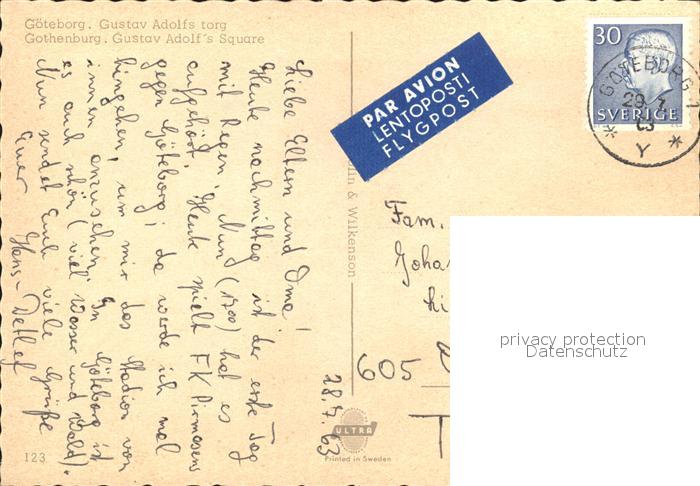 Göteborg. Gustav Adolfs torg
Gothenburg. Gustav Adolf's Square
Liebe Eltern und Oma!
Heute nachmittag ist der erste Tag
mit Regen. Nun (1700) hat es
aufgehört. Heute spielt FK Pirmasens
gegen Göteborg; da werde ich mal
hingehen, um mir das Stadion von
innen anzusehen. In Göteborg ist
es auch schön (viel Wasser und Wald).
Nun sendet Euch viele Grüße
Euer Hans-Detlef
28.7.63
123
ULTRA
Printed in Sweden
& Wilkenson
PAR AVION
LENTOPOSTI
FLYGPOST
30
SVERIGE
GÖTEBORG
29.7.
63
Y
Fam.
Joha
605
privacy protection
Datenschutz